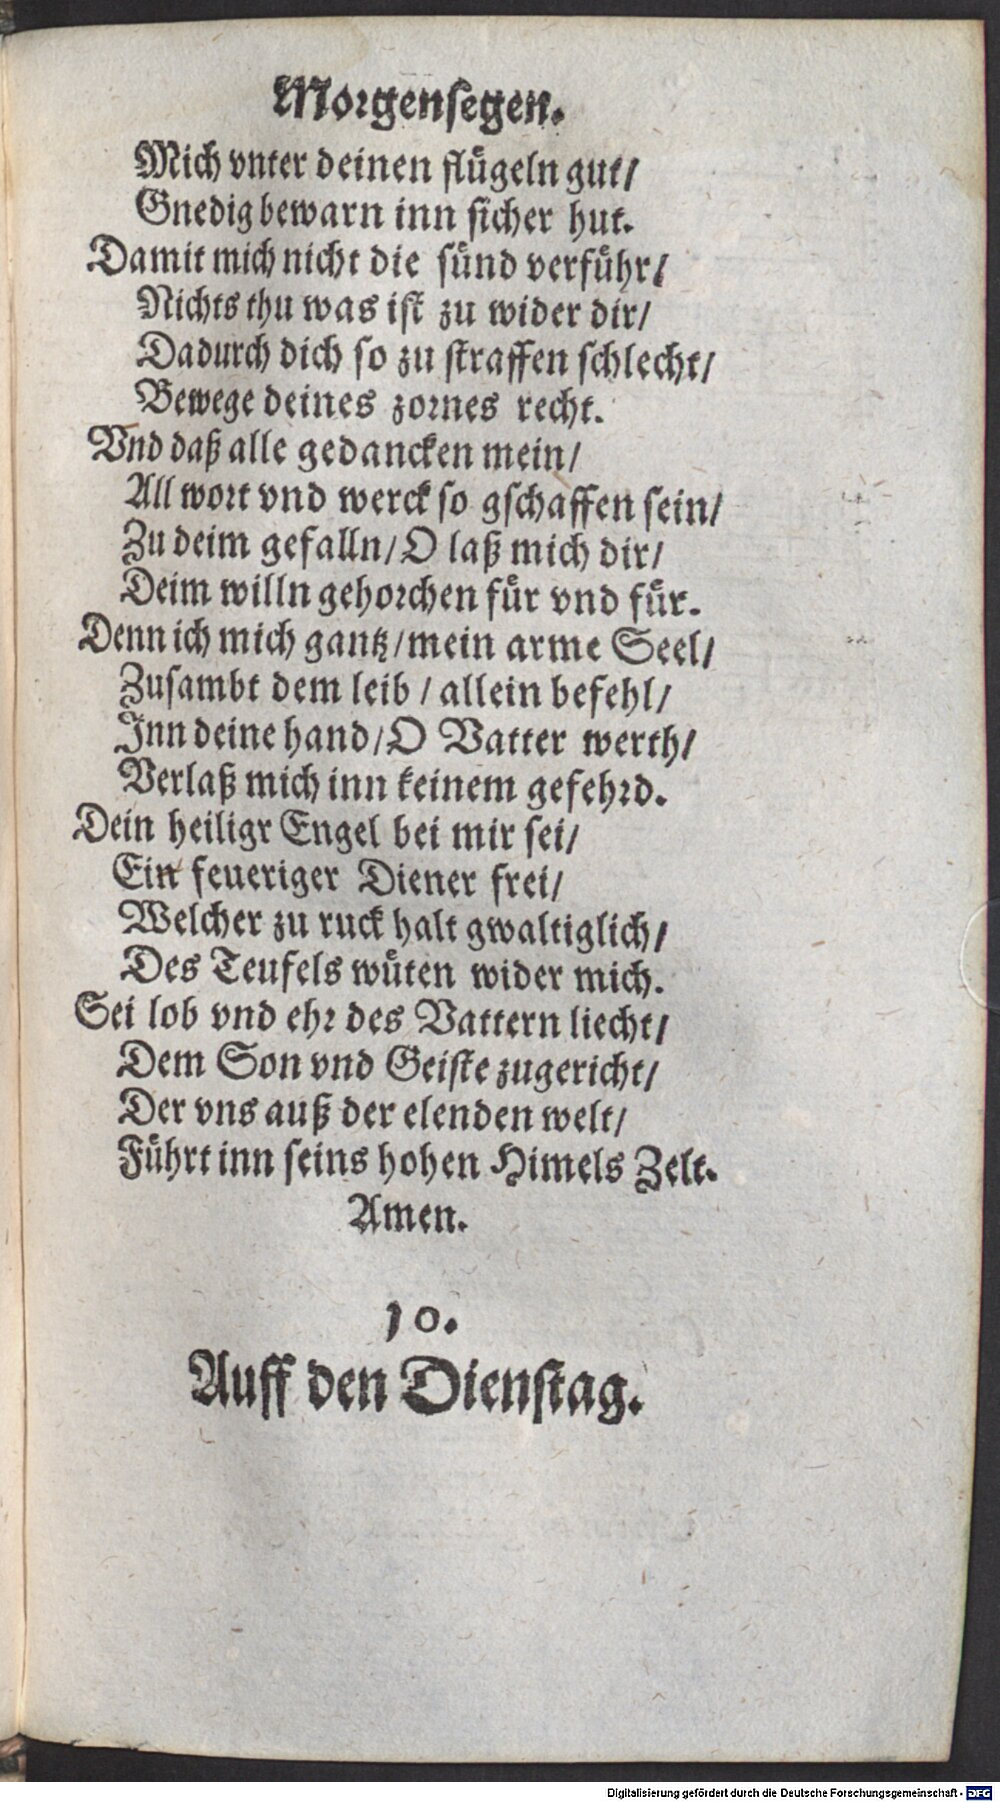 Morgensegen.
Mich vnter deinen flügeln gut/
Gnedig bewarn inn sicher hut.
Damit mich nicht die sünd verführ/
Nichts thu was ist zu wider dir/
Dadurch dich so zu straffen schlecht/
Bewege deines zornes recht.
Vnd daß alle gedancken mein/
All wort vnd werck so gschaffen sein/
Zu deim gefalln/ O laß mich dir/
Deim willn gehorchen für vnd für.
Denn ich mich gantz/ mein arme Seel/
Zusambt dem leib / allein befehl/
Inn deine hand/ O Vatter werth/
Verlaß mich inn keinem gefehrd.
Dein heiligr Engel bei mir sei/
Ein feueriger Diener frei/
Welcher zu ruck halt gwaltiglich/
Des Teufels wüten wider mich.
Sei lob vnd ehr des Vattern liecht/
Dem Son vnd Geiste zugericht/
Der vns auß der elenden welt/
Führt inn seins hohen Himels Zelt.
Amen.
10.
Auff den Dienstag.
Digitalisierung gefördert durch die Deutsche Forschungsgemeinschaft - DFG